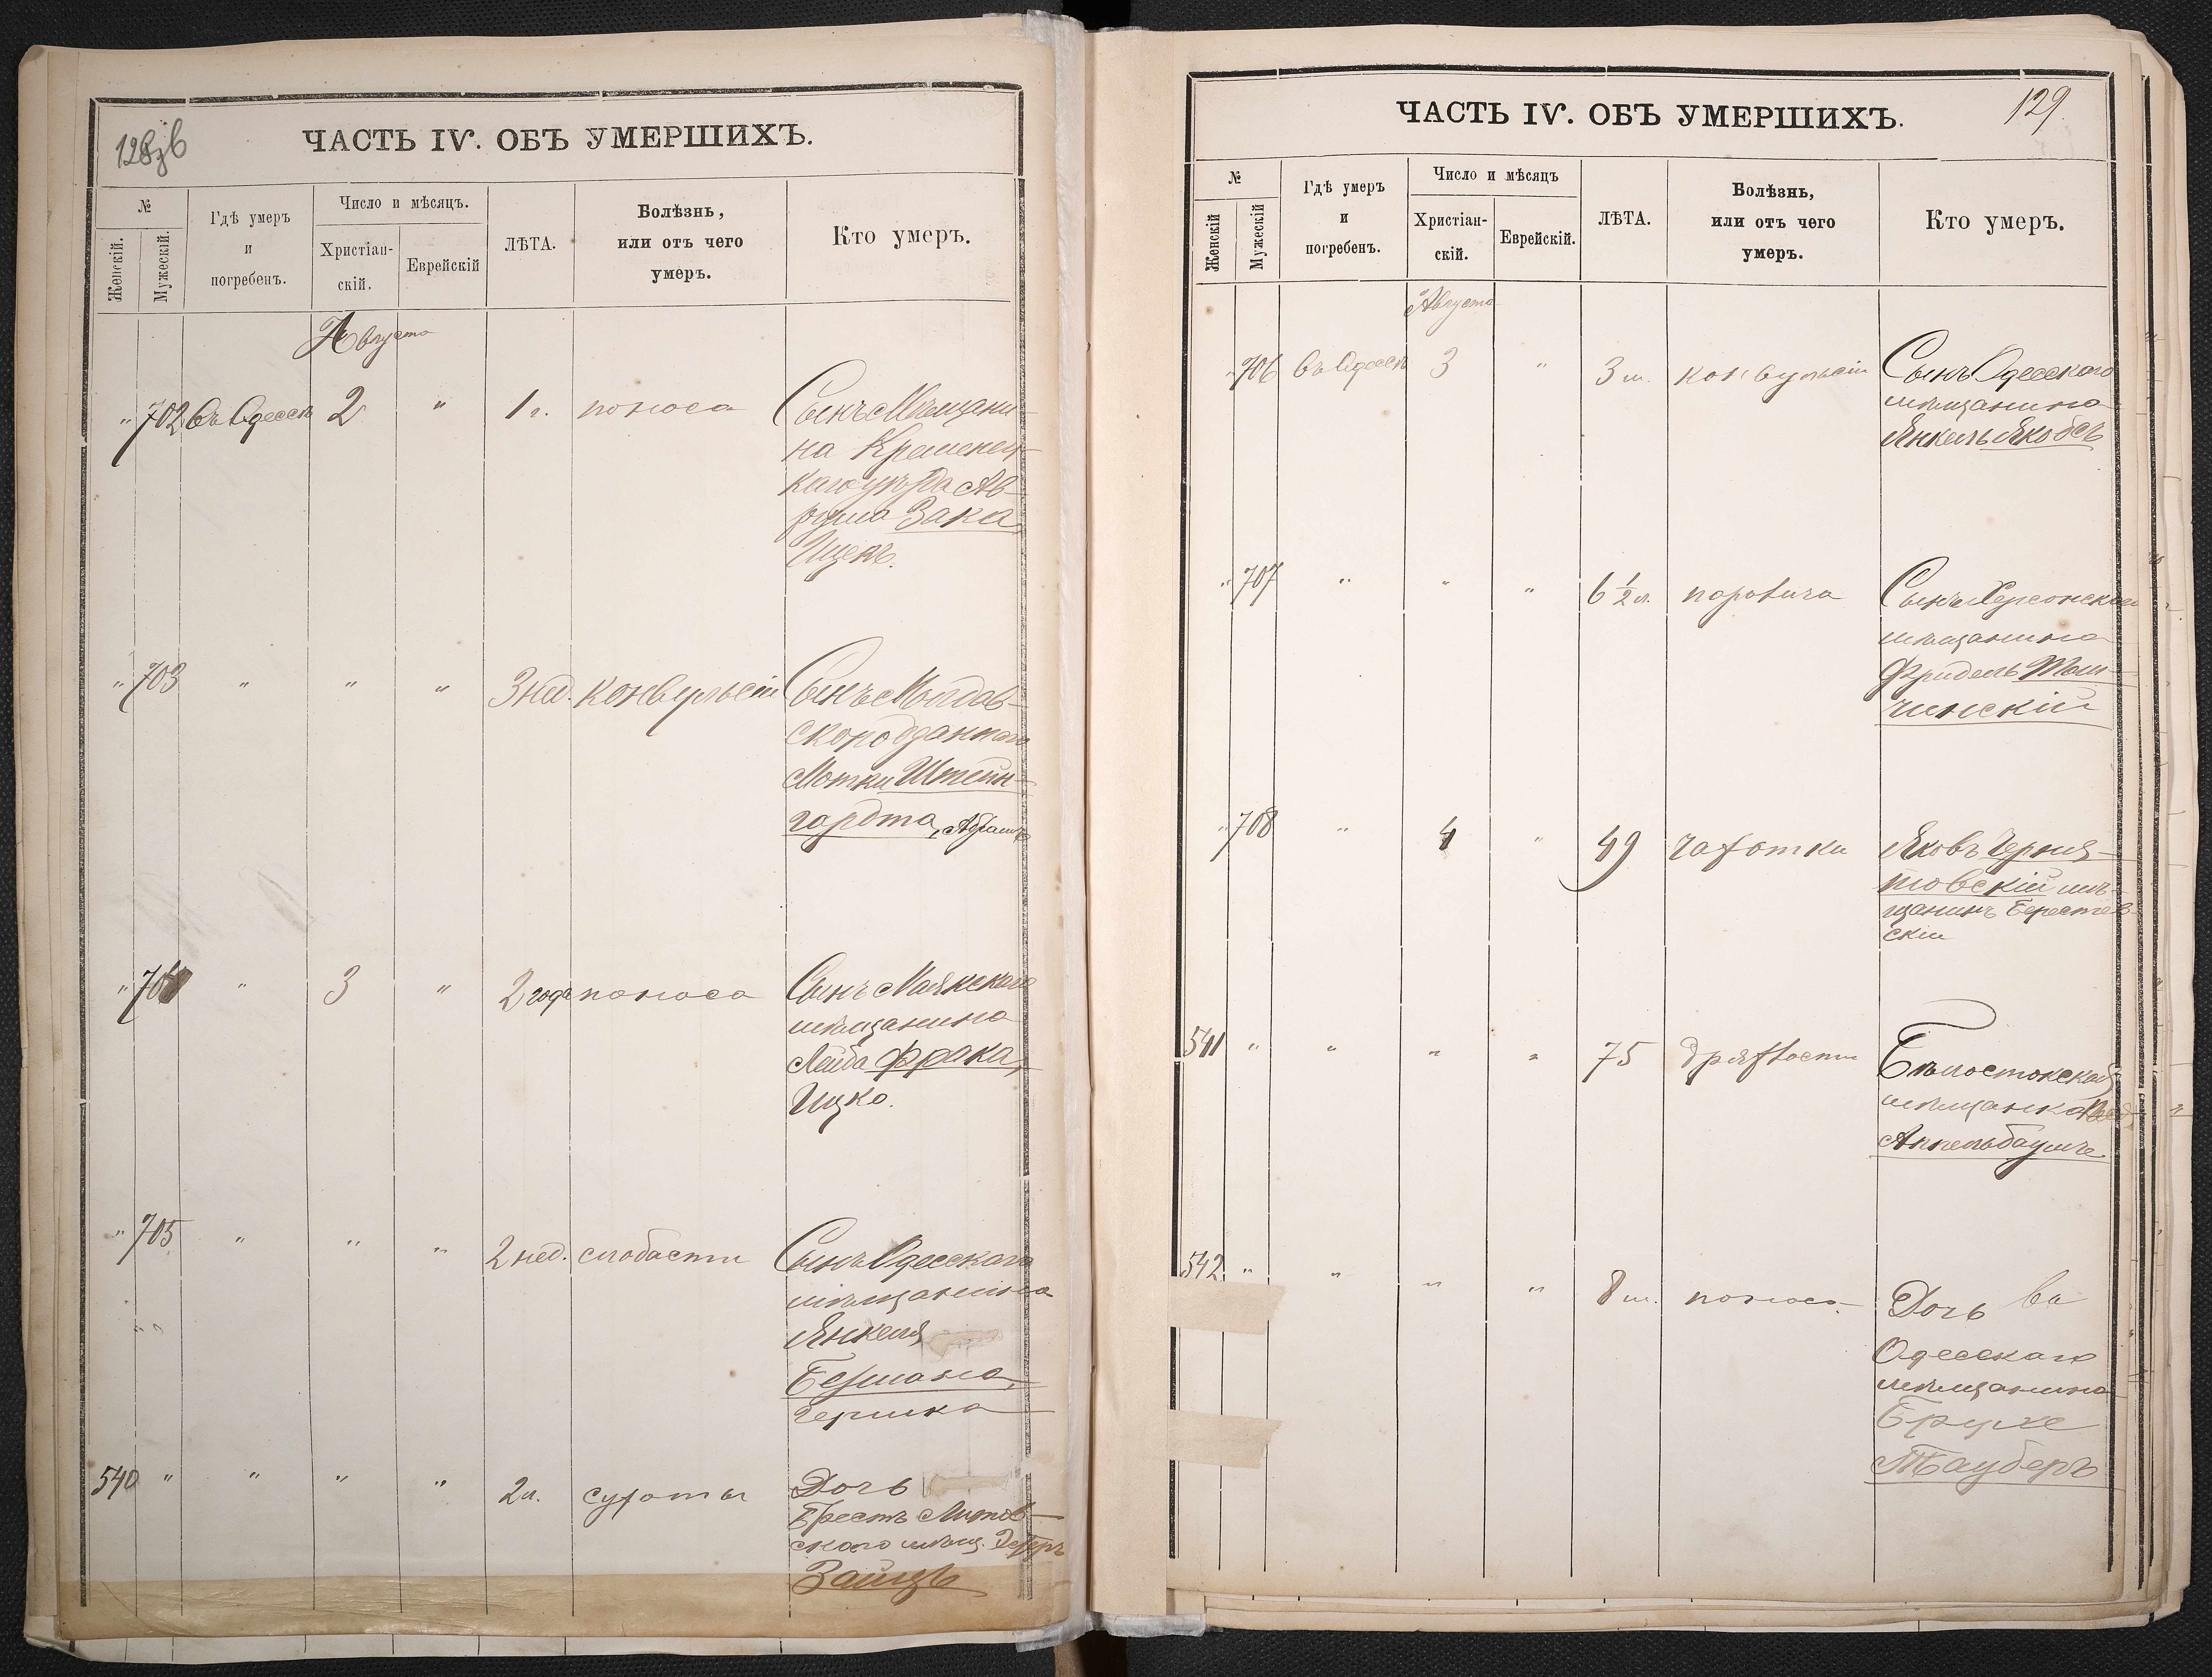 128 об
ЧАСТЬ IV. ОБЪ УМЕРШИХЪ.
№
Женскій.
Мужескій.
Гдѣ умеръ
и
погребенъ.
Число и мѣсяцъ.
Христіан-
скій.
Еврейскій
ЛѢТА.
Болѣзнь,
или отъ чего
умеръ.
Кто умеръ.
Августа
" 702 Въ Одессѣ 2 " 1 г. поноса Сынъ Мѣщани-
на Кременец-
каго уѣзда Ав-
рума Зака,
Ицекъ.
" 703 " " " 3 нед. конвульсіи Сынъ Молдав-
скоподданнаго
Мотки Штейн-
гардта, Абрамъ
" 704 " 3 " 2 года поноса Сынъ Маякскаго
мѣщанина
Лейба Фрака,
Ицко.
" 705 " " " 2 нед. слабости Сынъ Одесскаго
мѣщанина
Янкеля
Бермана,
Гершка
540 " " " " 2 л. сухоты Дочь
Брестъ Литов-
скаго мѣщ.
Зайцъ
129
ЧАСТЬ IV. ОБЪ УМЕРШИХЪ.
№
Женскій
Мужескій
Гдѣ умеръ
и
погребенъ.
Число и мѣсяцъ
Христіан-
скій.
Еврейскій.
ЛѢТА.
Болѣзнь,
или отъ чего
умеръ.
Кто умеръ.
Августа
" 706 Въ Одессѣ 3 " 3 м. конвульсіи Сынъ Одесскаго
мѣщанина
Янкель Якобсъ
" 707 " " " 6 ½ л. паралича Сынъ Херсонскаго
мѣщанина
Фридель
чинскій
" 708 " 4 " 49 чахотки Яковъ Черня-
ховскій мѣ-
щанинъ Берестев-
скій
541 " " " " 75 дряхлости Бѣлостокская
мѣщанка
Аппельбаумъ
542 " " " " 8 м. поноса Дочь
Одесскаго
мѣщанина
Брухе
Тауберъ